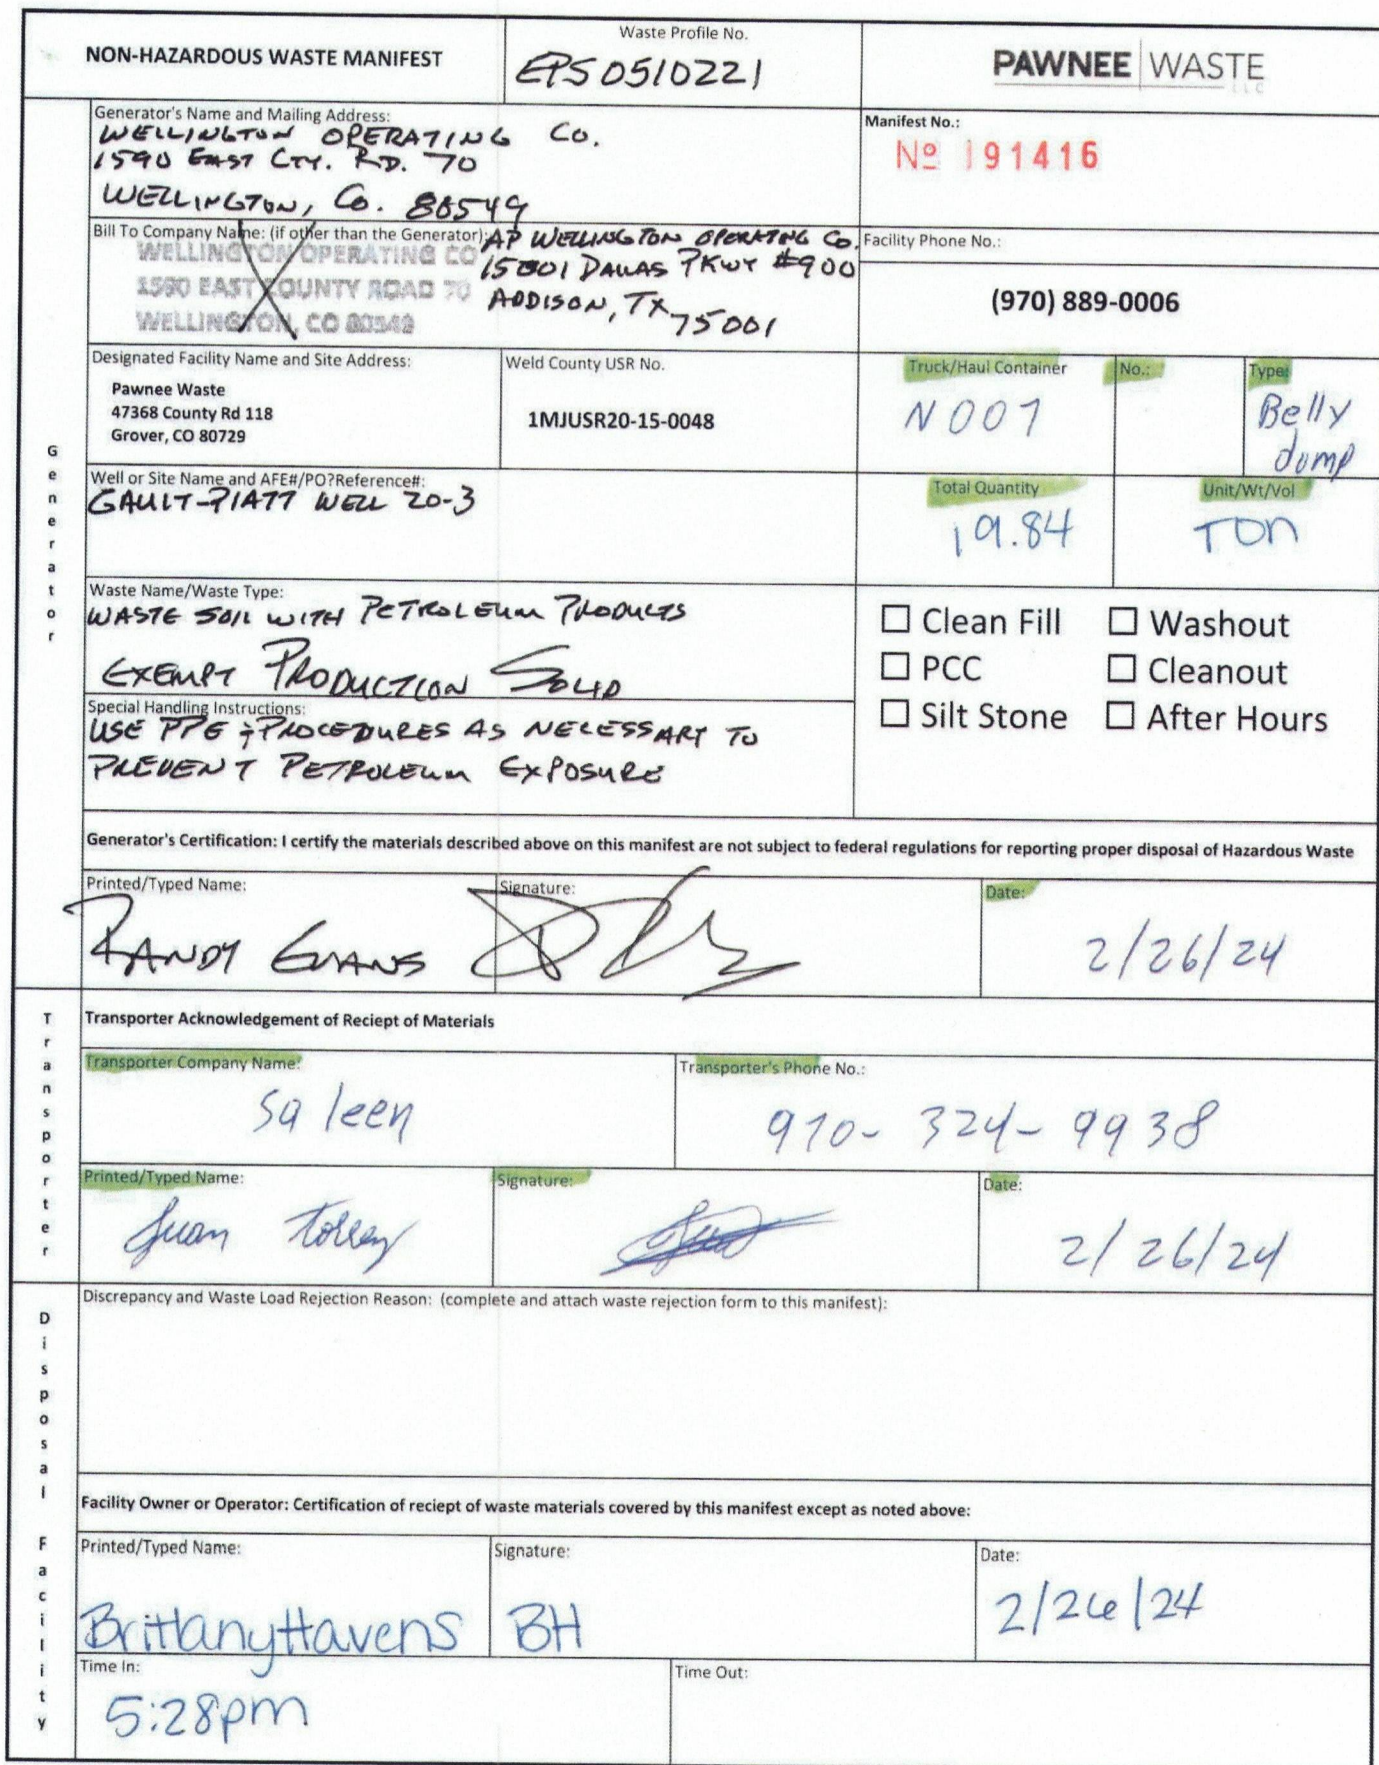 NON-HAZARDOUS WASTE MANIFEST
Waste Profile No.
EPS0510221
PAWNEE WASTE
LLC
Generator's Name and Mailing Address:
WELLINGTON OPERATING Co.
1590 EAST CTY. RD. 70
WELLINGTON, Co. 80549
Manifest No.:
Nº 191416
Bill To Company Name: (if other than the Generator):
WELLINGTON OPERATING CO
1590 EAST COUNTY ROAD 70
WELLINGTON, CO 80549
AP WELLINGTON OPERATING Co.
15001 DALLAS PKWY #900
ADDISON, TX 75001
Facility Phone No.:
(970) 889-0006
Designated Facility Name and Site Address:
Pawnee Waste
47368 County Rd 118
Grover, CO 80729
Weld County USR No.
1MJUSR20-15-0048
Truck/Haul Container
N007
No.:
Type:
Belly
dump
Generator
Well or Site Name and AFE#/PO?Reference#:
GAULT-PIATT WELL 20-3
Total Quantity
19.84
Unit/Wt/Vol
TON
Waste Name/Waste Type:
WASTE SOIL WITH PETROLEUM PRODUCTS
EXEMPT PRODUCTION SOLID
☐ Clean Fill ☐ Washout
☐ PCC ☐ Cleanout
☐ Silt Stone ☐ After Hours
Special Handling Instructions:
USE PPE & PROCEDURES AS NECESSARY TO
PREVENT PETROLEUM EXPOSURE
Generator's Certification: I certify the materials described above on this manifest are not subject to federal regulations for reporting proper disposal of Hazardous Waste
Printed/Typed Name:
RANDY EVANS
Signature:
Date:
2/26/24
Transporter
Transporter Acknowledgement of Reciept of Materials
Transporter Company Name:
Saleen
Transporter's Phone No.:
970-324-9938
Printed/Typed Name:
Juan
Signature:
Date:
2/26/24
Disposal Facility
Discrepancy and Waste Load Rejection Reason: (complete and attach waste rejection form to this manifest):
Facility Owner or Operator: Certification of reciept of waste materials covered by this manifest except as noted above:
Printed/Typed Name:
Brittany Havens
Signature:
BH
Date:
2/26/24
Time In:
5:28pm
Time Out: